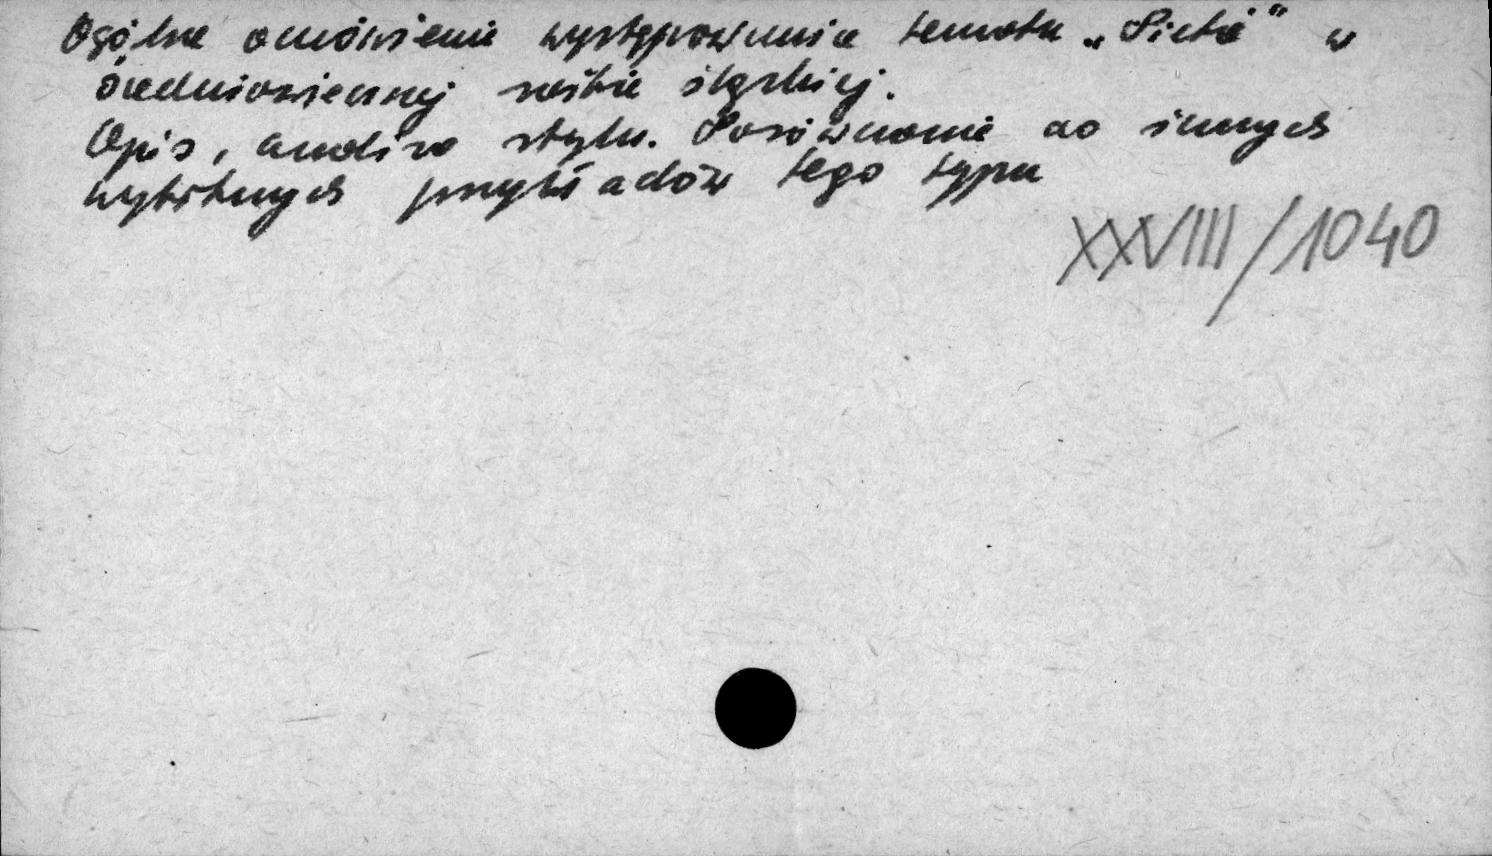 Ogólne omówienie występowania tematu „Pietà" w
średniowiecznej rzeźbie śląskiej.
Opis, analiza stylu. Porównanie do innych
wybitnych przykładów tego typu
XXVIIII/1040